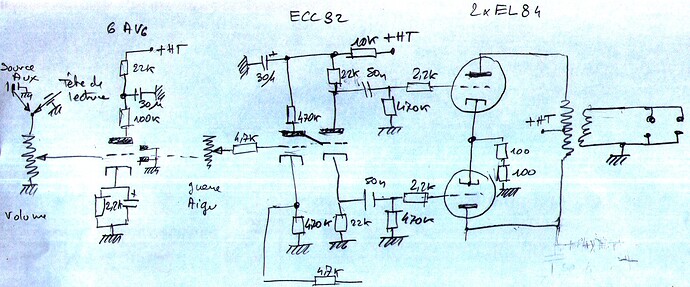 6 AV6
ECC82
2 x EL84
+HT
+HT
10K
Source
Aux
tête de
lecture
22K
30µ
100K
30µ
22K
50n
2,2K
470K
470K
4,7K
+HT
100
100
2,2K
50n
2,2K
470K
22K
470K
grave
Aigu
Volume
47K